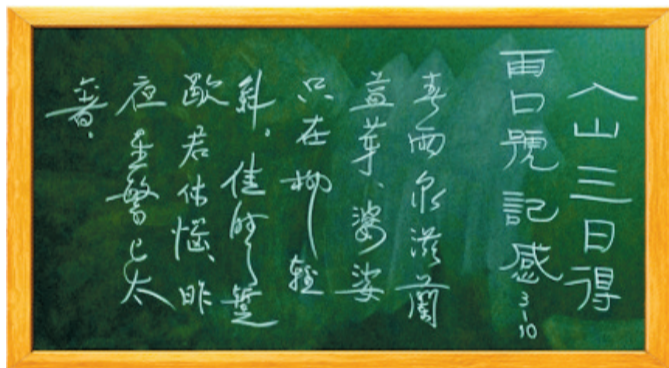 入山三日得
雨口號記感 3-10
春雨滋蘭
益芽、婆娑
只在柳輕
斜。佳時暫
歇君休惱、昨
夜已太
奢。